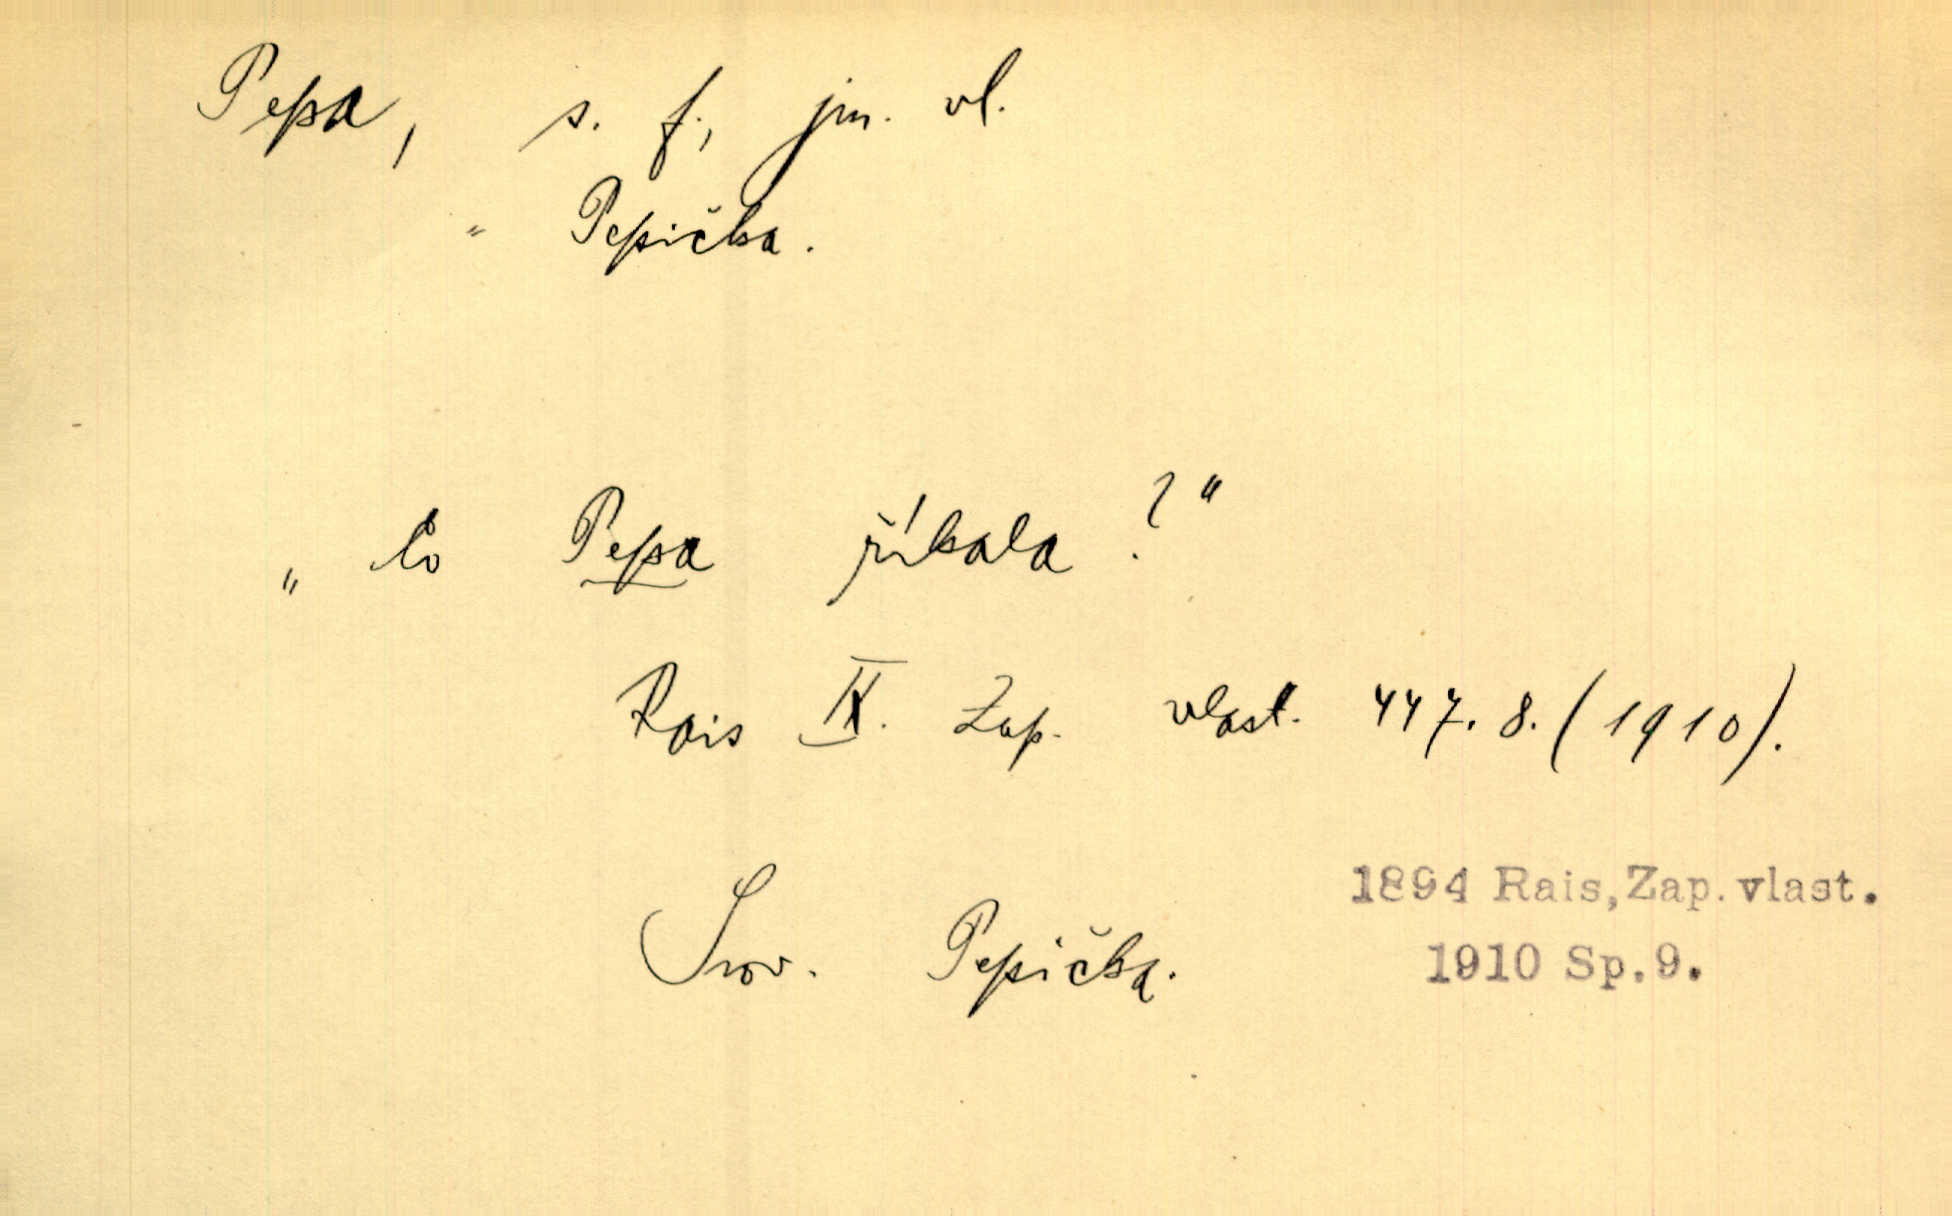 Pepa, s. f., jm. vl.
" Pepička.
„Co Pepa říkala?"
Rais IX. Zap. vlast. 447. 8. (1910).
1894 Rais, Zap. vlast.
Srov. Pepička.
1910 Sp. 9.